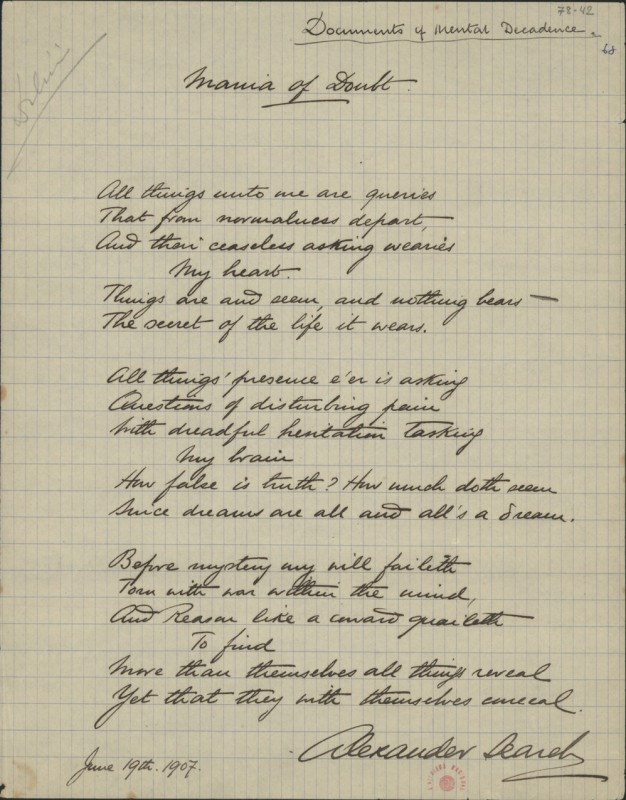 78-42
Documents of Mental Decadence.
68
Delirii
Mania of Doubt.
All things unto me are queries
That from normalness depart,
And their ceaseless asking wearies
My heart.
Things are and seem, and nothing bears —
The secret of the life it wears.
All things' presence e'er is asking
Questions of disturbing pain
With dreadful hesitation tasking
My brain
How false is truth? How much doth seem
Since dreams are all and all's a dream.
Before mystery my will faileth
Torn with war within the mind,
And Reason like a coward quaileth
To find
More than themselves all things reveal
Yet that they with themselves conceal.
Alexander Search
June 19th. 1907.